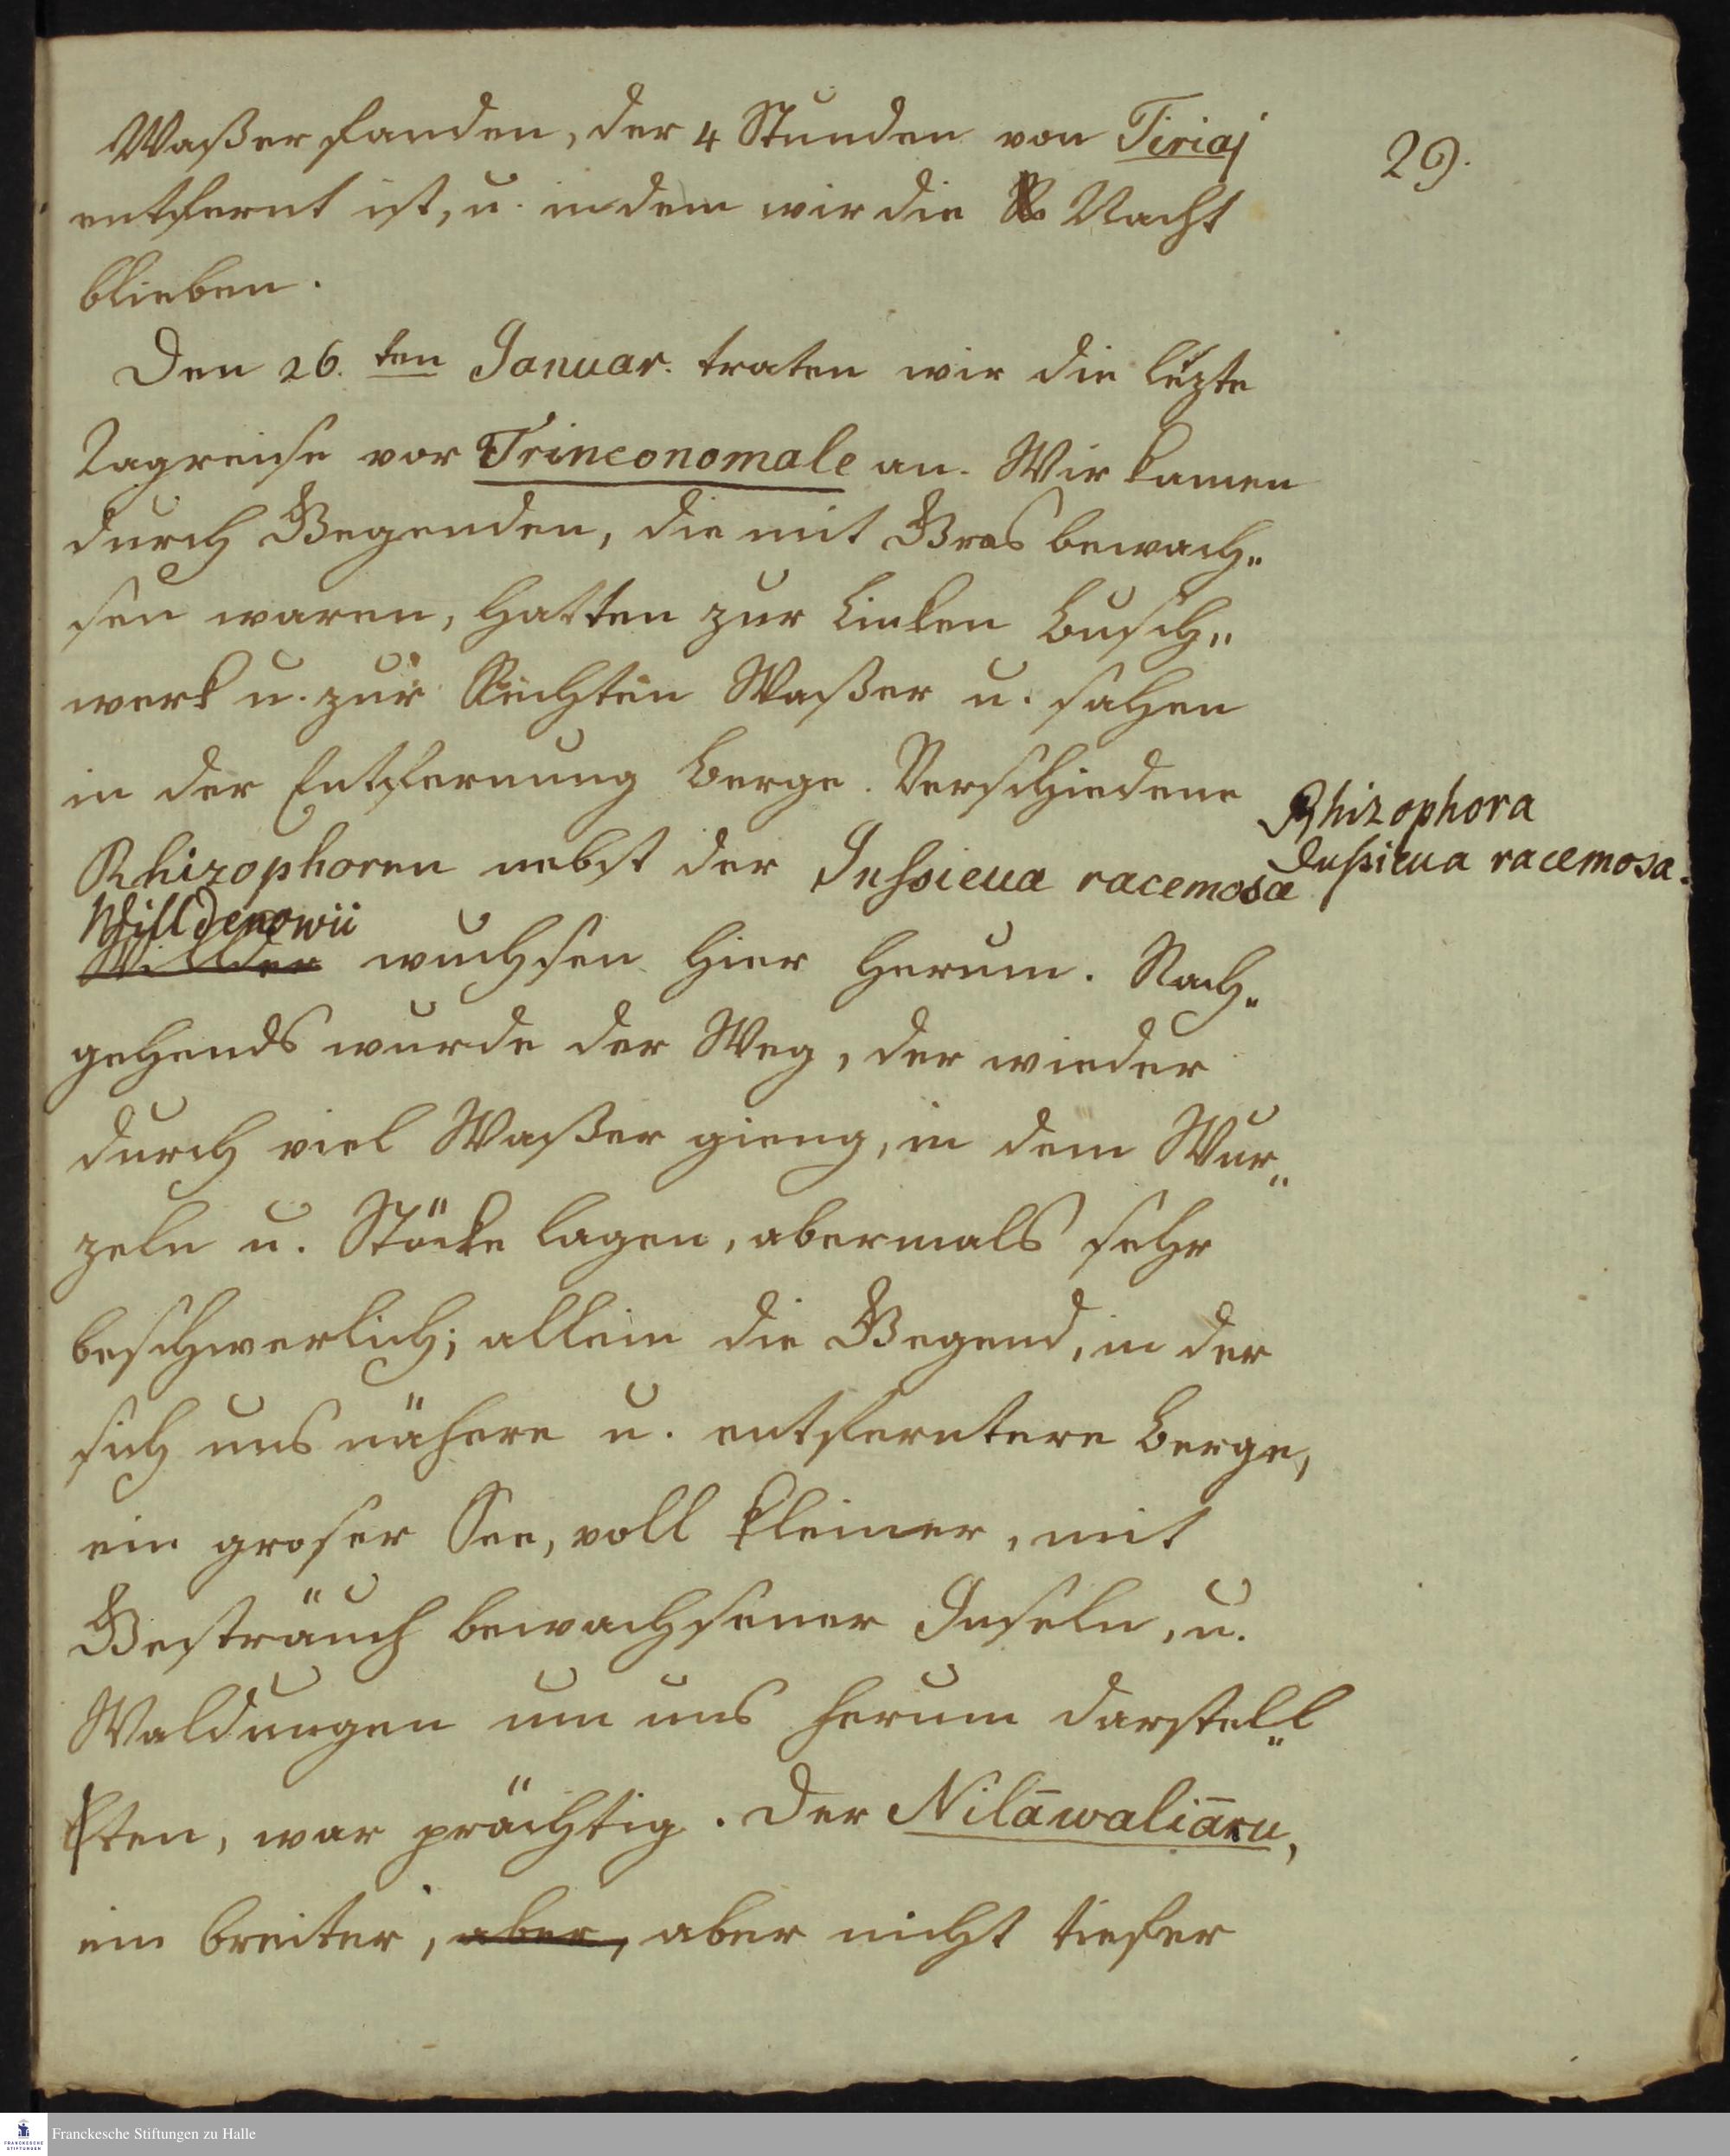 29.
Waßer fanden, der 4 Stunden von Tiriaj
entfernt ist, u. in dem wir die Nacht
blieben.
Den 26. ten Januar. traten wir die lezte
Tagreise vor Trinconomale an. Wir kamen
durch Gegenden, die mit Gras bewach„
sen waren, hatten zur Linken Busch„
werk u. zur Rechten Waßer u. sahen
in der Entfernung Berge. Verschiedene
Rhizophoren nebst der Jussieua racemosa
Rhizophora
Jussieua racemosa.
Willdenowii
Willden wuchsen hier herum. Nach„
gehends wurde der Weg, der wieder
durch viel Waßer gieng, in dem Wur„
zeln u. Stöcke lagen, abermals sehr
beschwerlich; allein die Gegend, in der
sich uns nähere u. entferntere Berge,
ein groser See, voll kleiner, mit
Gesträuch bewachsener Inseln, u.
Waldungen um uns herum darstell„
ten, war prächtig. Der Nilāwaliāru,
ein breiter, aber, aber nicht tiefer
Franckesche Stiftungen zu Halle
FRANCKESCHE
STIFTUNGEN